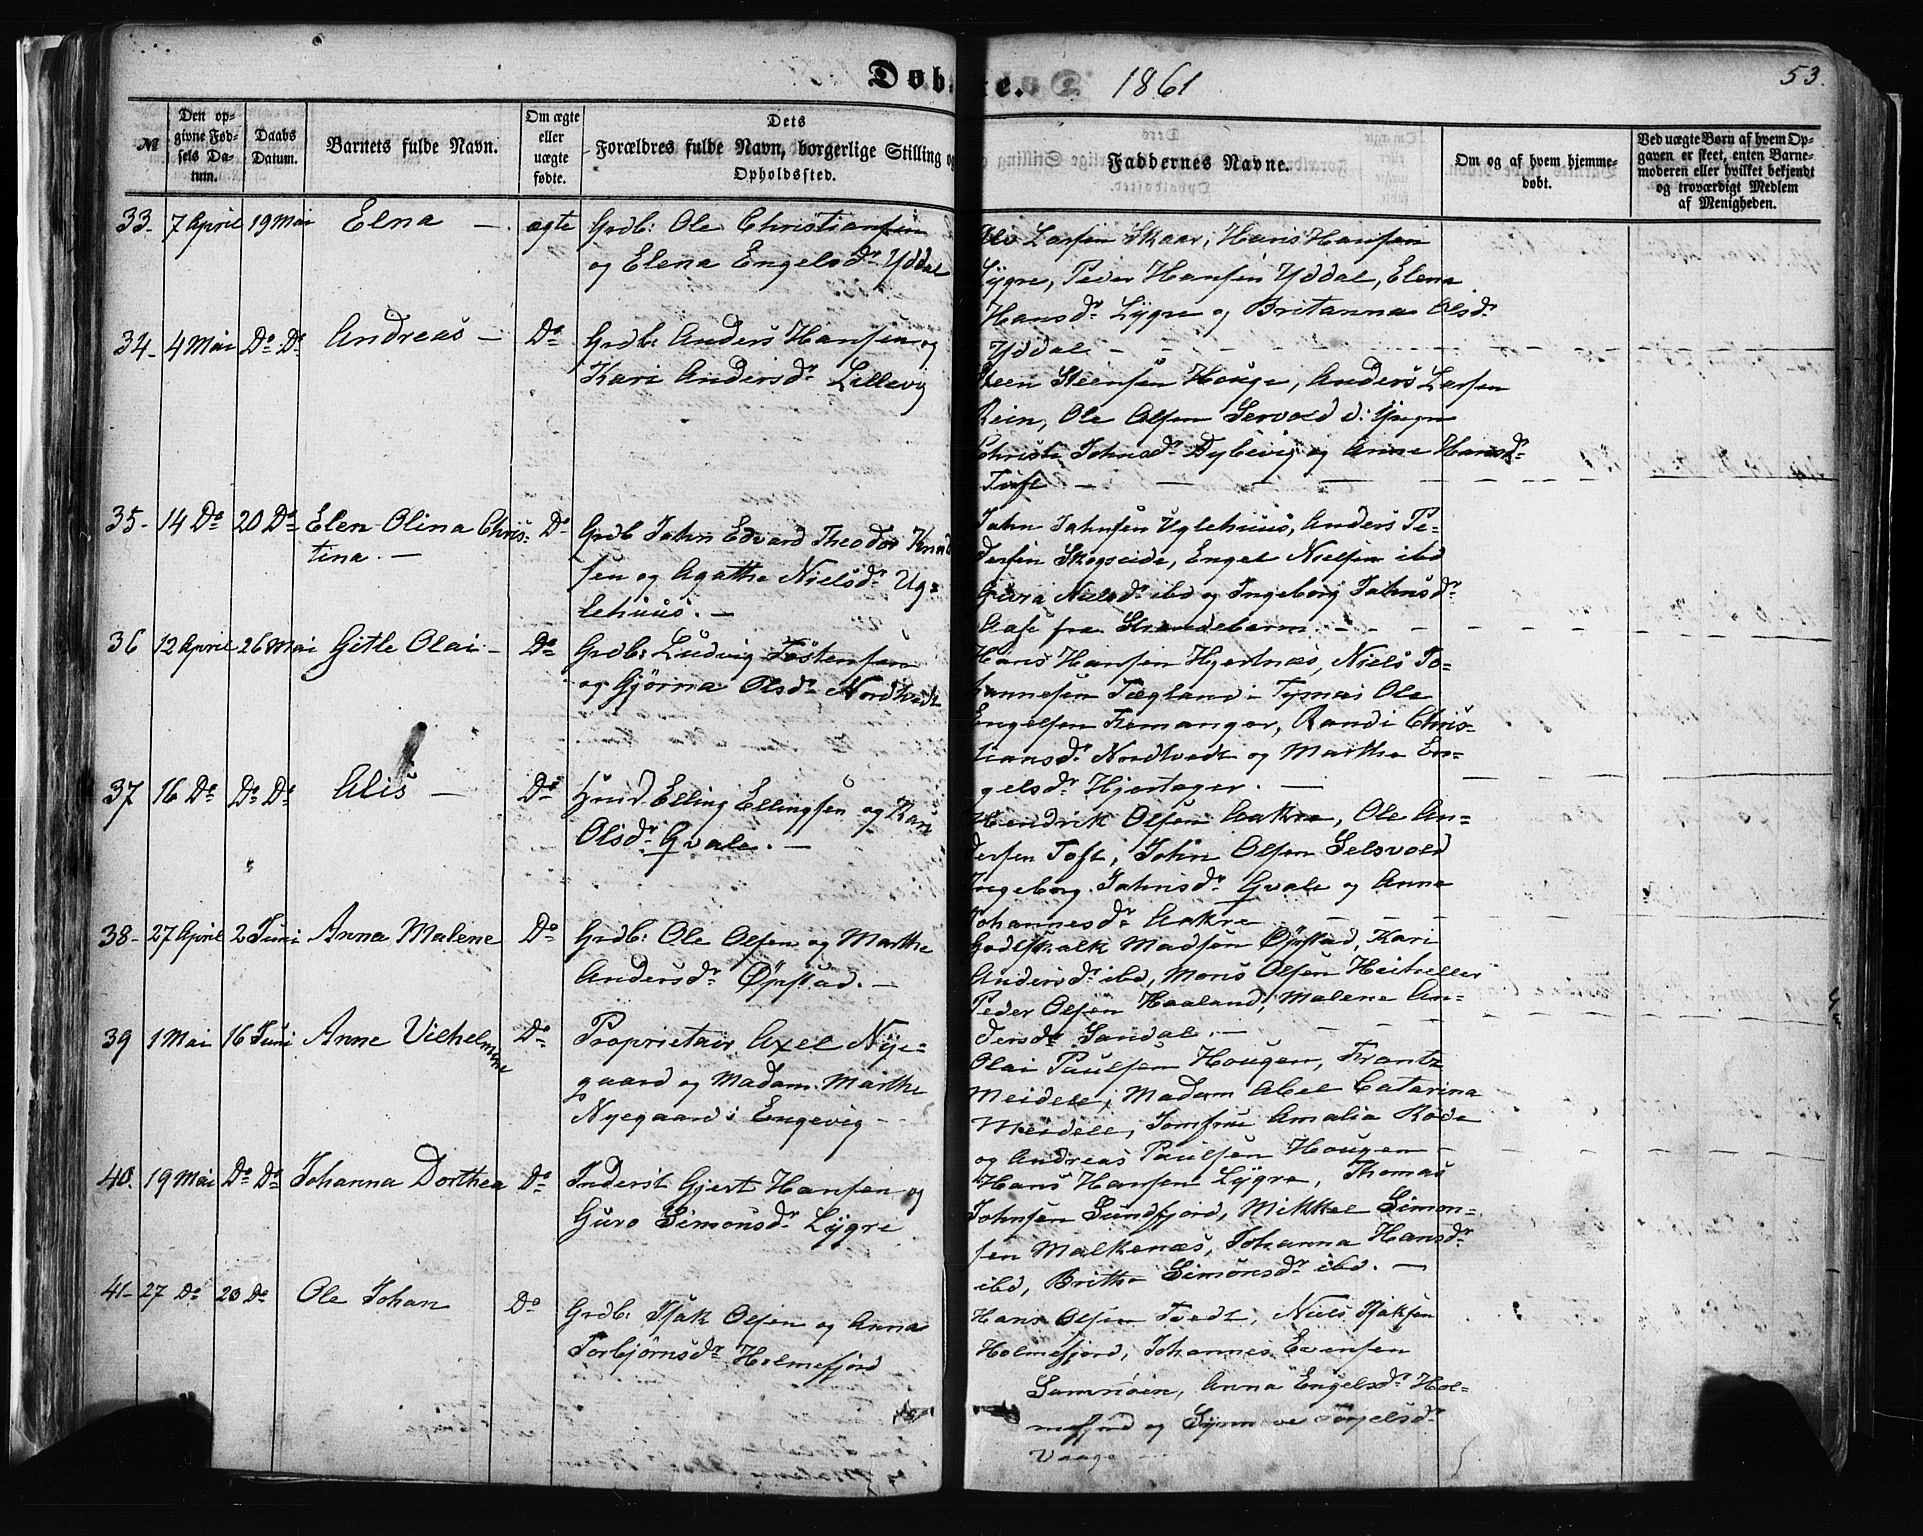 Døb
te.
1861
53.
№
Den op-
givne Fød-
sels Da-
tum.
Daabs
Datum.
Barnets fulde Navn.
Om ægte
eller
uægte
fødte.
Dets
Forældres fulde Navn, borgerlige Stilling og
Opholdssted.
Faddernes Navne.
Om og af hvem hjemme-
døbt.
Ved uægte Børn af hvem Op-
gaven er skeet, enten Barne-
moderen eller hvilket bekjendt
og troværdigt Medlem
af Menigheden.
33- 7 April 19 Mai Elna - ægte Grdb: Ole Christiansen
og Elena Engelsdr Yddal
Larsen Skaar, Hans Hansen
Lygre, Peder Hansen Yddal, Elena
Hansdr Lygre og Britanna Olsdr
Yddal - -
34- 4 Mai Do Do Andreas - Do Grdb: Anders Hansen og
Kari Andersdr Lillevig
Steen Steensen Houge, Anders Larsen
Rein, Ole Olsen
Johnsdr Dybevig og Anne Hansdr
Toft - -
35- 14 Do 20 Do Elen Olina Chris-
tina. - Do Grdb John Edvard Theodor Knud
sen og Agathe Nielsdr Ug-
lehuus. -
John Johnsen Uglehuus, Anders Pe-
dersen Skogseide, Engel Nielsen ibd
Nielsdr ibd og Ingeborg Johnsdr
Aase fra Strandebarm - -
36 12 April 26 Mai Gitle Olai - Do Grdb: Ludvig Tostensen
og Gjørna Olsdr Nordtvedt
Hans Hansen Hjertnæs, Niels Jo-
hannesen Tægland i Tysnæs Ole
Engelsen Femanger, Randi Chris-
tiansdr Nordtvedt og Marthe En-
gelsdr Hjertager. -
37 16 Do Do Do Alis - Do Huusmd. Elling Ellingsen og Kari
Olsdr Gvale. -
Hendrik Olsen Aakre, Ole An-
dersen Toft, John Olsen Selsvold
Ingeborg Johnsdr Gvale og Anna
Johannesdr Aakre - -
38- 27 April 2 Juni Anna Malene Do Grdb: Ole Olsen og Marthe
Andersdr Øpstad. -
Godtskalk Madsen Øpstad, Kari
Andersdr ibd, Mons Olsen
Peder Olsen Haaland, Malene An-
dersdr Sandal. -
39 1 Mai 16 Juni Anne Vilhelmine Do Proprietair Axel Nye-
gaard og Madam Marthe
Nyegaard i Engevig -
Olai Paulsen Hougen, Frantz
Meidell, Madam Abel Catarina
Meidell, Jomfrue Amalia Rode
og Andreas Paulsen Hougen -
40. 19 Mai Do Do Johanna Dorthea Do Inderst Gjert Hansen og
Guro Simonsdr Lygre
Hans Hansen Lygre, Thomas
Johnsen Sundfjord, Mikkel Simon-
sen Malkenæs, Johanna Hansdr
ibd, Britha Simonsdr ibd. -
41- 27 Do 20 Do Ole Johan Do Grdb: Isak Olsen og Anna
Torbjørnsdr Holmefjord
Hans Olsen Tvedt, Niels Isaksen
Holmefjord, Johannes Evensen
Samnøen, Anna Engelsdr Hol-
mefjord og Synneve
Vaage